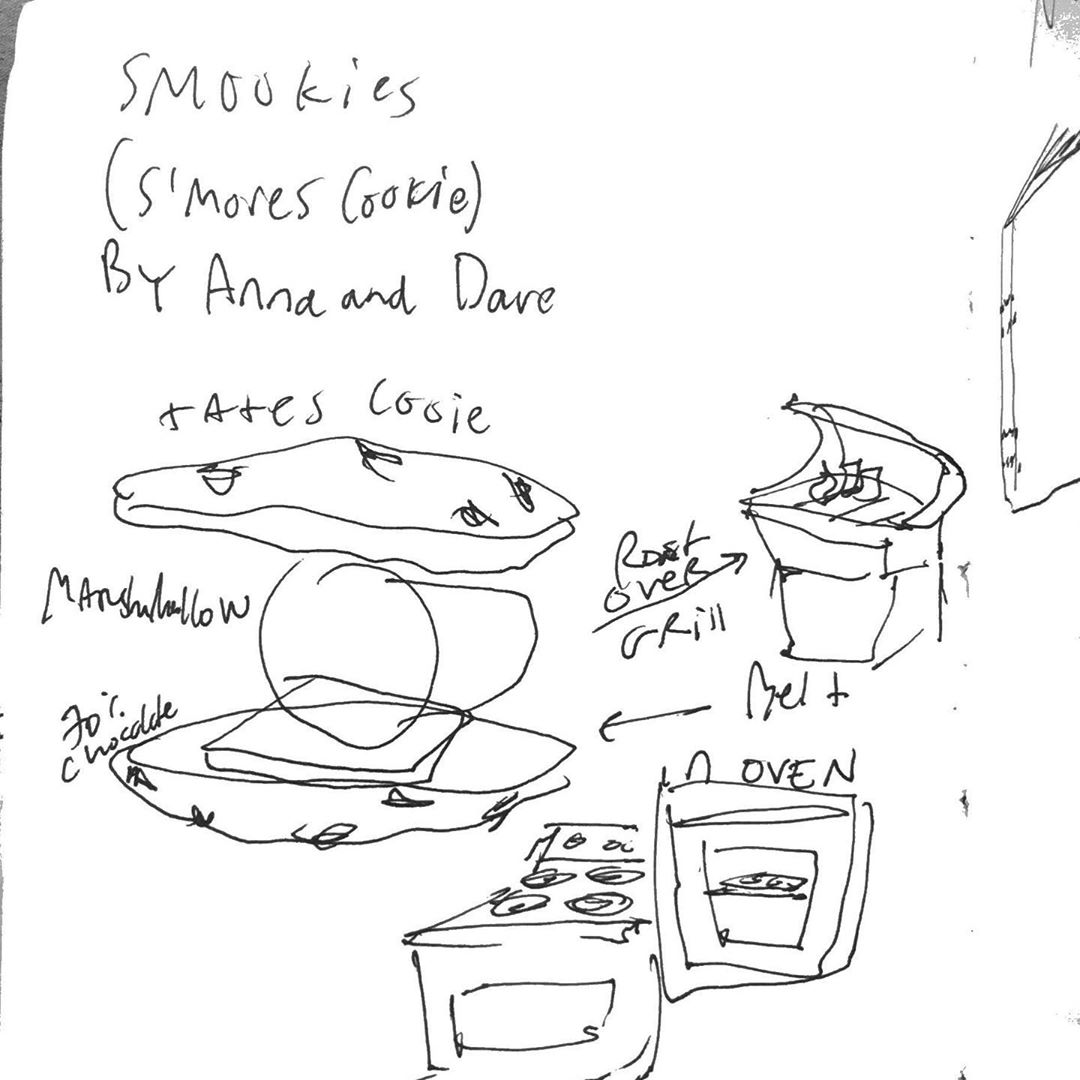 SMOOkies
(S'Mores Cookie)
By Anna and Dave
tAtes Cooie
MArshmallow
70% Chocolate
Roast over Grill
Melt
in OVEN